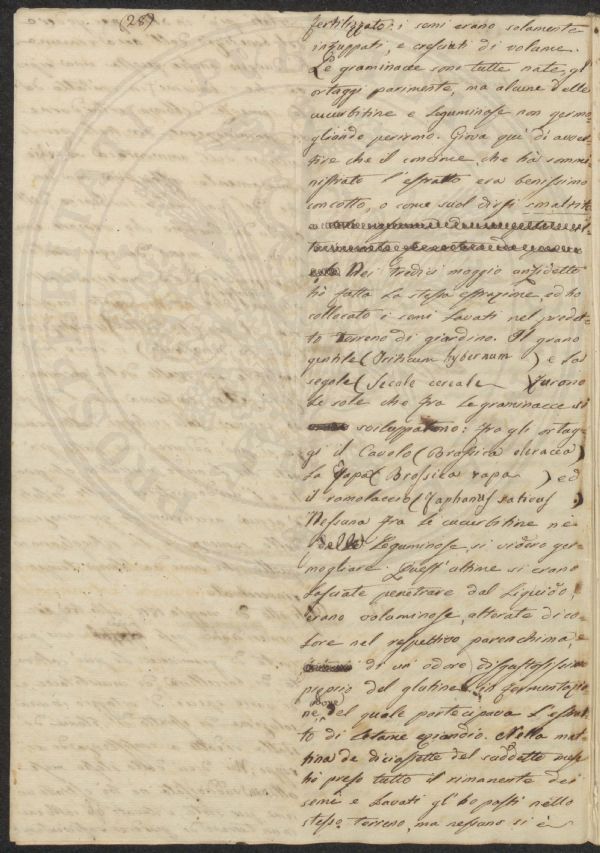 (28)
fertilizzato i semi erano solamente
inzuppati, e cresciuti di volume.
Le graminacee sono tutte nate, gl'
ortaggi parimente, ma alcune delle
cucurbitine e leguminose non germo-
gliando perirono. Giova quì di avver-
tire che il concime, che hà sommi-
nistrato l'estratto era benissimo
concotto, o come suol dirsi smaltito
Nei tredici maggio anzidetto
hò fatta la stessa estrazione, ed ho
collocato i semi lavati nel predet-
to terreno di giardino. Il grano
gentile (Triticum hybernum) e la
segole (Secale cereale) furono
le sole che fra le graminacee si
svilupparono: fra gli ortag-
gi il Cavolo (Brassica oleracea)
la Rapa (Brassica rapa) ed
il ramolaccio (Raphanus sativus)
Nessuna fra le cucurbitine nè
delle leguminose si videro ger-
mogliare. Quest'ultime si erano
lasciate penetrare dal liquido,
erano voluminose, alterate di co-
lore nel respettivo parenchima, e
di un odore disgustosissimo
proprio del glutine in fermentazio-
ne, del quale partecipava l'estrat-
to di letame eziandio. Nella mat-
tina de diciassette del suddetto mese
hò preso tutto il rimanente dei
semi e lavati gl'ho posti nello
stesso terreno, ma nessuno si è